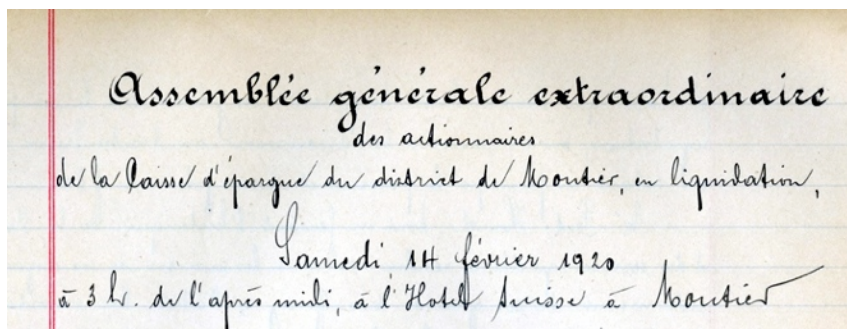 Assemblée générale extraordinaire
des actionnaires
de la Caisse d'épargne du district de Moutier, en liquidation,
Samedi 14 février 1920
à 3 hr. de l'après midi, à l'Hotel Suisse à Moutier